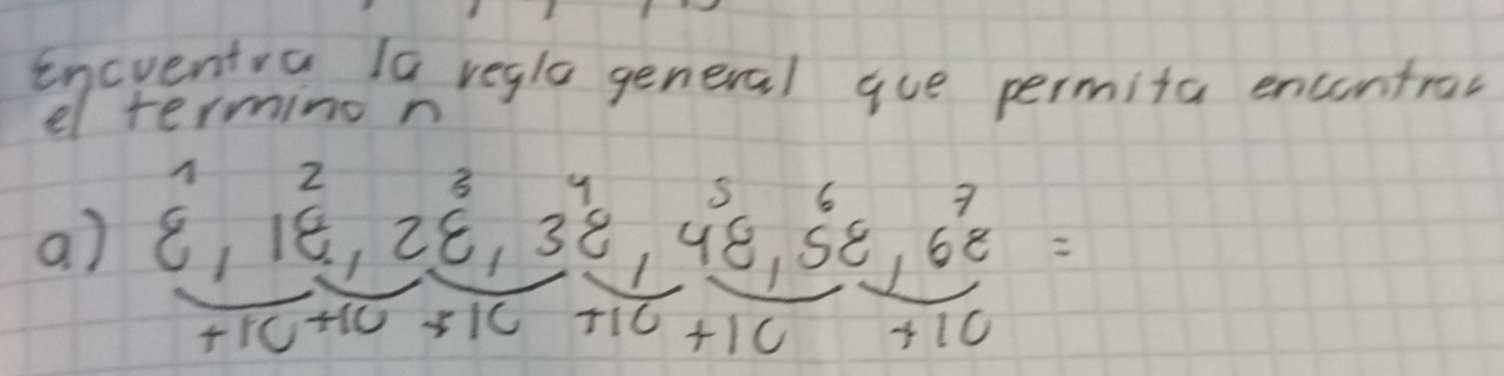 Encuentra la regla general que permita encontrar
el termino n
1 2 3 4 5 6 7
a) 8, 18, 28, 38, 48, 58, 68 =
+10 +10 +10 +10 +10 +10